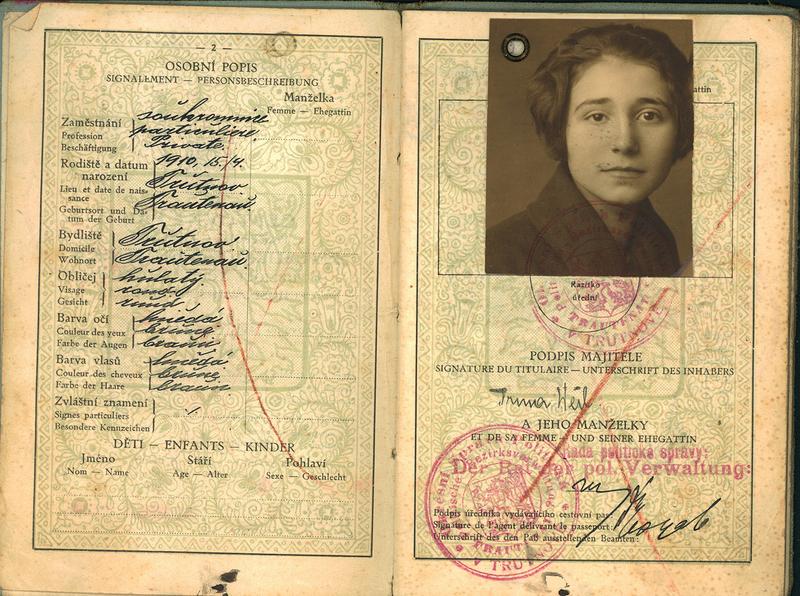 — 2 —
OSOBNÍ POPIS
SIGNALLMENT — PERSONSBESCHREIBUNG
Manželka
Femme — Ehegattin
Zaměstnání
Profession
Beschäftigung
soukromnice
particulière
Private.
Rodiště a datum
narození
Lieu et date de nais-
sance
Geburtsort und Da-
tum der Geburt
1910, 15./4.
Trutnov
Trautenau.
Bydliště
Domicile
Wohnort
Trutnov
Trautenau.
Obličej
Visage
Gesicht
kulatý
rond
rund
Barva očí
Couleur des yeux
Farbe der Augen
hnědá
brune
braun
Barva vlasů
Couleur des cheveux
Farbe der Haare
hnědá
brune
braun
Zvláštní znamení
Signes particuliers
Besondere Kennzeichen
DĚTI — ENFANTS — KINDER
Jméno Stáří Pohlaví
Nom — Name Age — Alter Sexe — Geschlecht
attin
Razítko
úřední
TRAUTENAU
V TRUTNOVĚ
PODPIS MAJITELE
SIGNATURE DU TITULAIRE — UNTERSCHRIFT DES INHABERS
Irma Heil
A JEHO MANŽELKY
ET DE SA FEMME — UND SEINER EHEGATTIN
Rada politické správy:
Der Rat der pol. Verwaltung:
Podpis úředníka vydávajícího cestovní pas:
Signature de l'agent délivrant le passeport:
Unterschrift des den Paß ausstellenden Beamten:
V TRUTNOVĚ